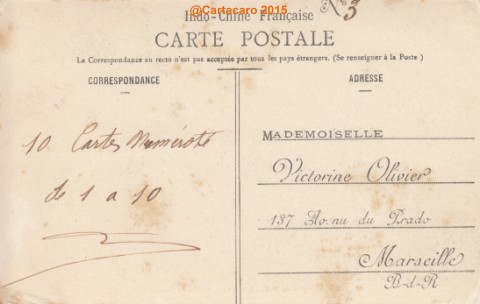 @Cartacaro 2015
Indo-Chine Française
3
CARTE POSTALE
La Correspondance au recto n'est pas acceptée par tous les pays étrangers. (Se renseigner à la Poste)
CORRESPONDANCE
ADRESSE
10 Cartes Numéroté
de 1 a 10
MADEMOISELLE
Victorine Olivier
137 Av.nu du Prado
Marseille
B-d-R